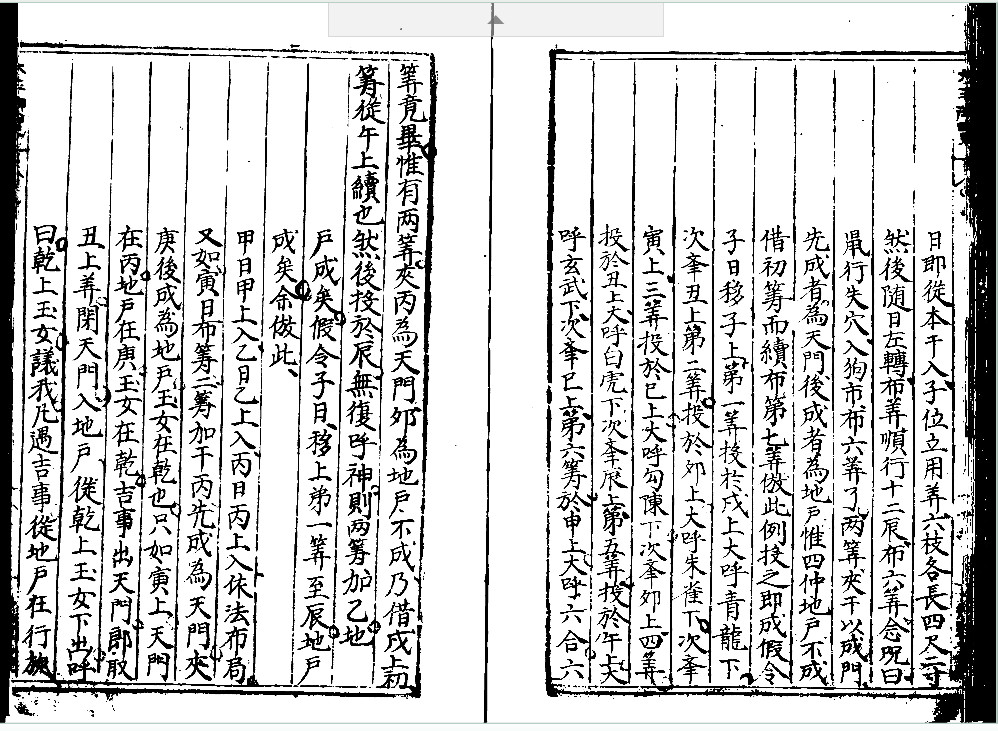 日即從本干入子位立用筭六枝各長四尺二寸
然後隨日左轉布筭順行十二辰布六筭念呪曰
鼠行失穴入狗市布六筭了两筭夾干以成門
先成者為天門後成者為地戶惟四仲地戶不成
借初筭而續布第七筭倣此例投之即成假令
子日移子上第一筭投於戌上大呼青龍下
次拳丑上第二筭投於夘上大呼朱雀下次拳
寅上三筭投於巳上大呼勾陳下次拳夘上四筭
投於丑上大呼白虎下次拳辰上第五筭投於午上大
呼玄武下次拳巳上第六筭於申上大呼六合六
筭竟畢惟有两筭夾丙為天門夘為地戶不成乃借戌上初
筭從午上續也然後投於辰無復呼神則两筭加乙地
戶成矣假令子日移上弟一筭至辰地戶
成矣余倣此
甲日甲上入乙日乙上入丙日丙上入依法布局
又如寅日布筭二筭加干丙先成為天門夾
庚後成為地戶玉女在乾也只如寅上天門
在丙地戶在庚玉女在乾吉事出天門即取
丑上筭閉天門入地戶從乾上玉女下出呼
曰乾上玉女議我凡遇吉事從地戶在行旋